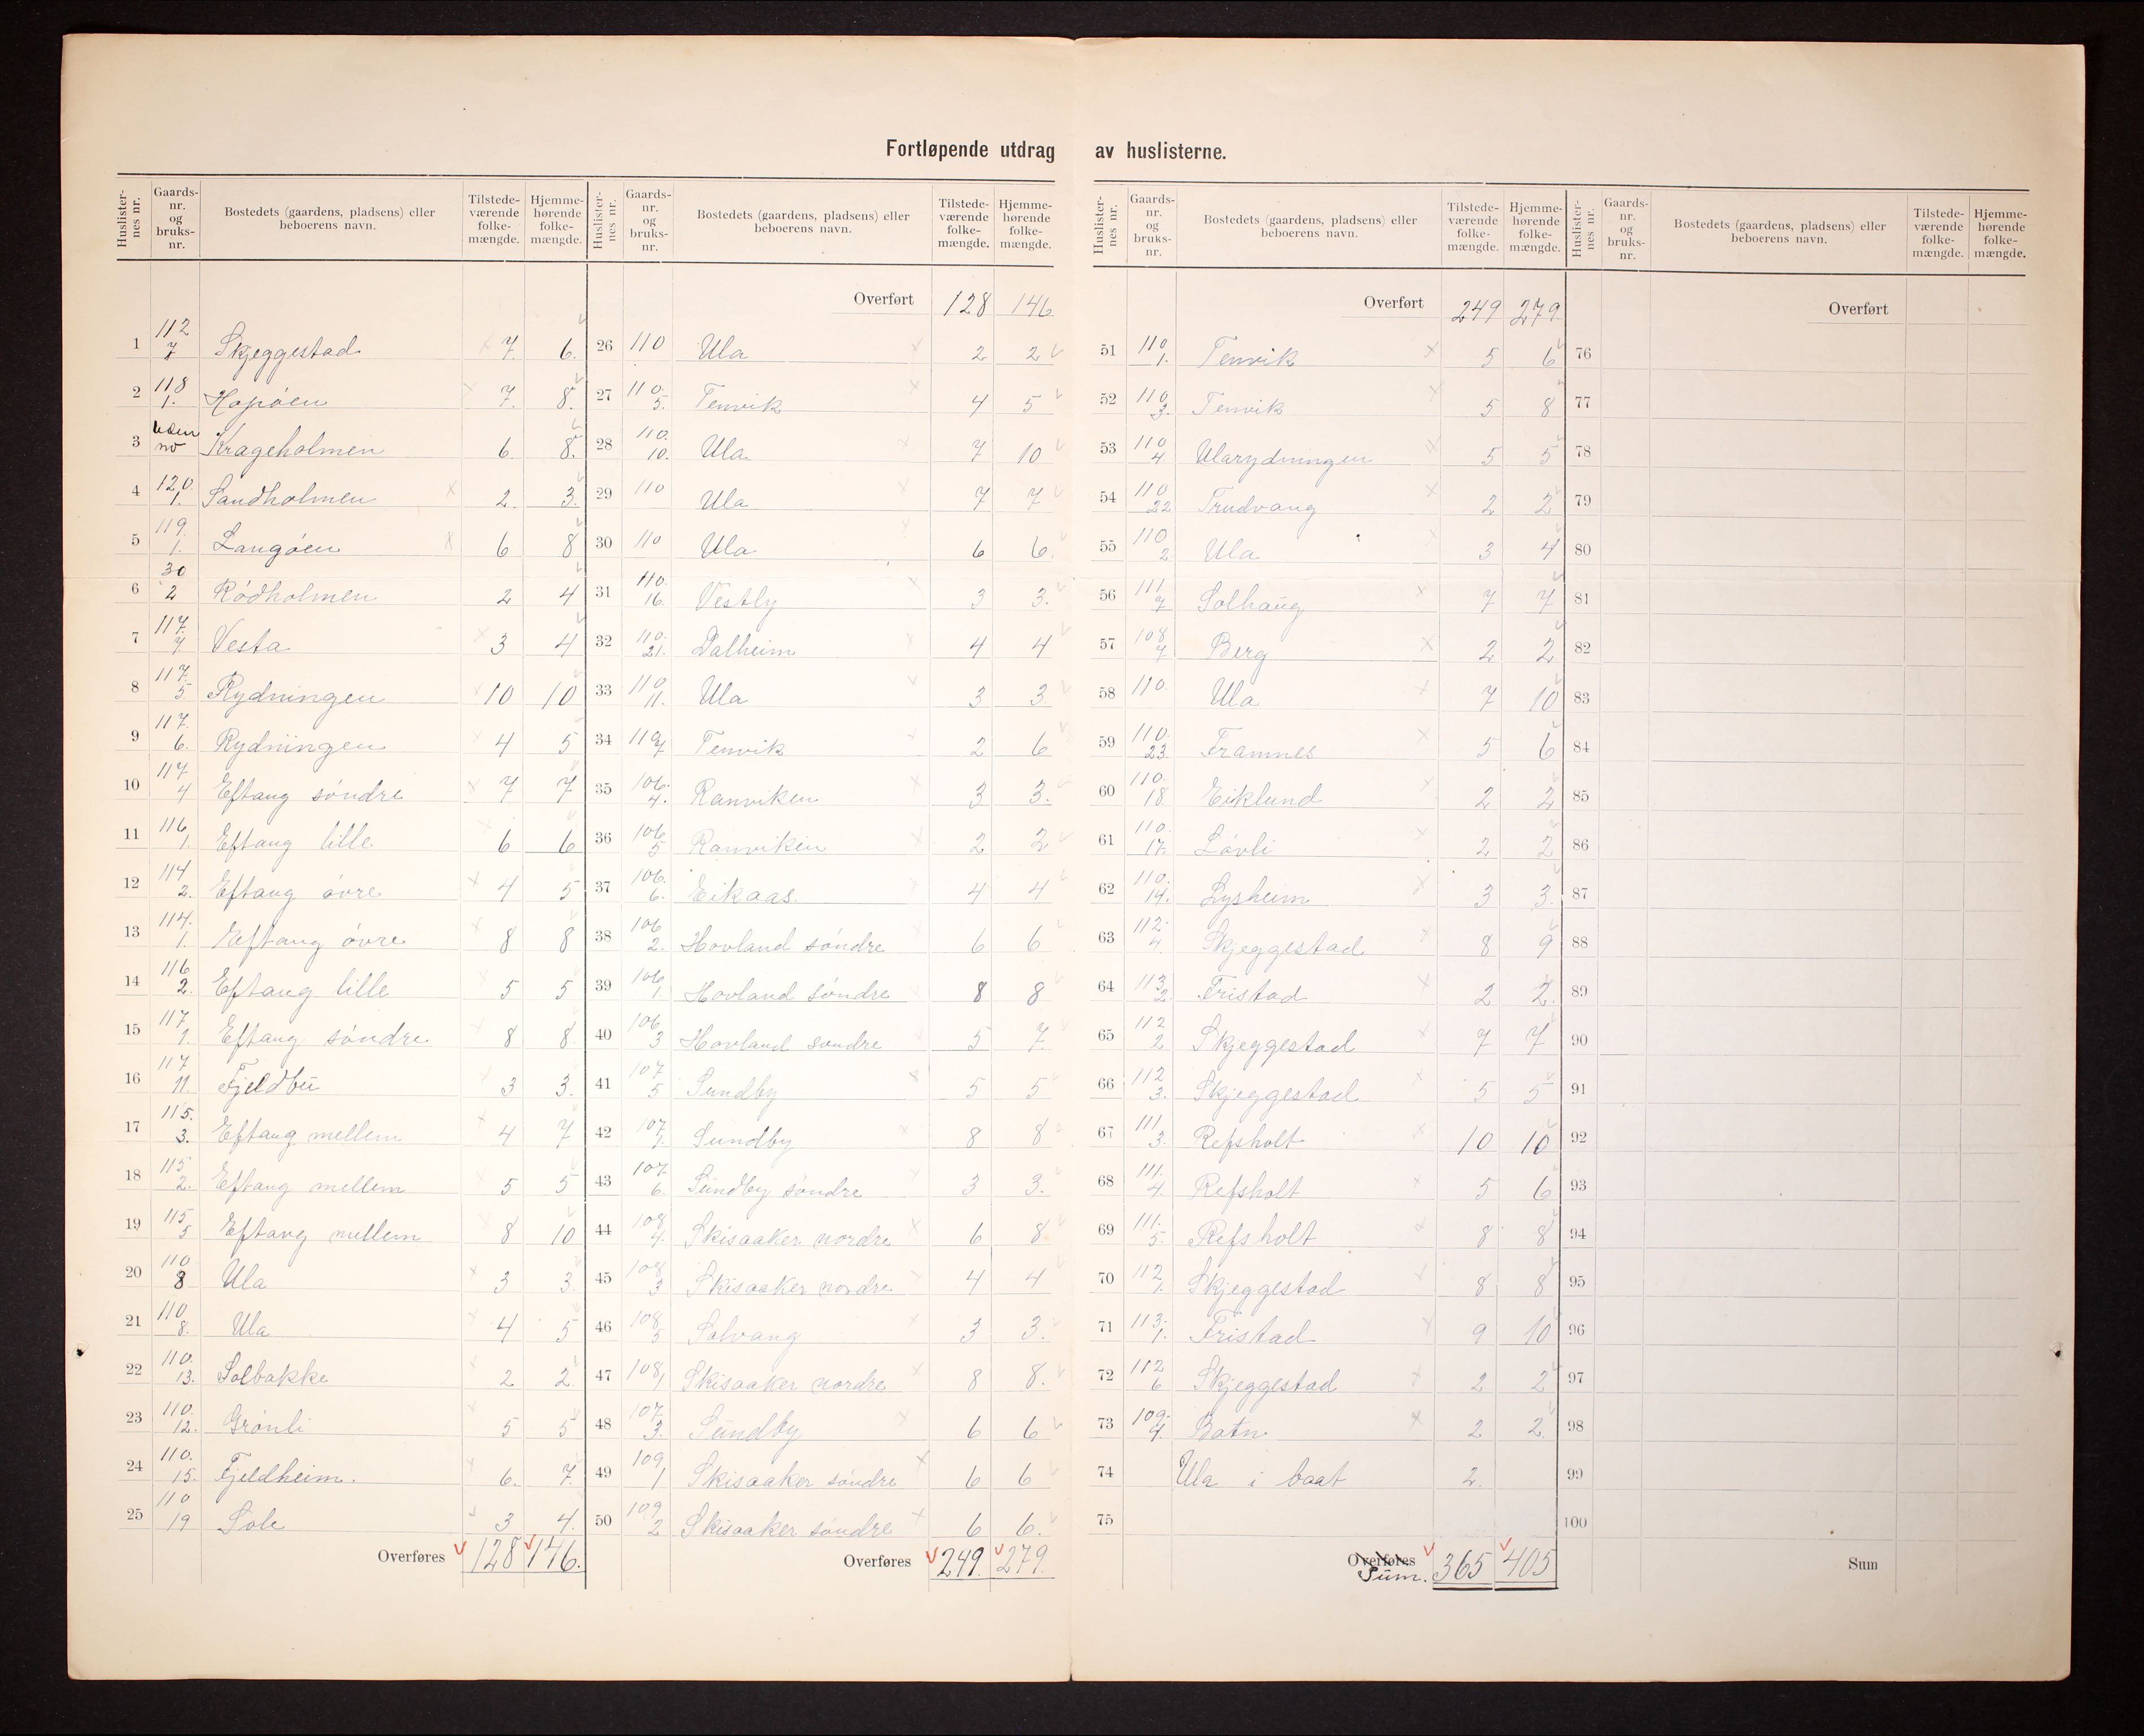 Fortløpende utdrag av huslisterne.
Huslisternes nr. Gaardsnr. og bruksnr. Bostedets (gaardens, pladsens) eller beboerens navn. Tilstedeværende folkemængde. Hjemmehørende folkemængde.
1 112 7 Skjeggestad 7. 6.
2 118 1. Hapøen 7. 8.
3 Uden no Krageholmen 6. 8.
4 120. 1. Sandholmen 2. 3.
5 119. 1. Langøen 6 8
6 30 2 Rødholmen 2 4
7 117. 7 Vesta 3 4
8 117. 5 Rydningen 10 10
9 117. 6. Rydningen 4 5
10 117 4 Eftang søndre 7 7
11 116 1. Eftang lille 6 6
12 114 2. Eftang øvre 4 5
13 114. 1. Eftang øvre 8 8
14 116 2. Eftang lille 5 5
15 117 1. Eftang søndre 8 8
16 117 11. Fjeldbu 3 3.
17 115. 3. Eftang mellem 4 7
18 115 2. Eftang mellem 5 5
19 115 5 Eftang mellem 8 10
20 110 8 Ula 3 3
21 110 8. Ula 4 5
22 110. 13. Solbakke 2 2
23 110. 12. Grønli 5 5
24 110. 15. Fjeldheim. 6. 7.
25 110 19 Sole 3 4.
Overføres 128 146.
Huslisternes nr. Gaardsnr. og bruksnr. Bostedets (gaardens, pladsens) eller beboerens navn. Tilstedeværende folkemængde. Hjemmehørende folkemængde.
Overført 128 146
26 110 Ula 2 2
27 110. 5. Tenvik 4 5
28 110. 10. Ula 7 10
29 110 Ula 7 7
30 110 Ula 6 6.
31 110. 16. Vestly 3 3.
32 110. 21. Dalheim 4 4
33 110 11. Ula 3 3
34 Tenvik 2 6
35 106. 4. Ranviken 3 3.
36 106 5 Ranviken 2 2
37 106. 6. Eikaas. 4 4
38 106 2. Hovland søndre 6 6
39 106 1. Hovland søndre 8 8
40 106. 3 Hovland søndre 5 7
41 107 5 Sundby 5 5
42 107 1. Sundby 8 8
43 107. 6. Sundby søndre 3 3.
44 108 4. Skisaaker nordre 6 8
45 108 3 Skisaaker nordre 4 4
46 108 5 Solvang 3 3.
47 108 1 Skisaaker nordre 8 8.
48 107. 3. Sundby 6 6
49 109 1 Skisaaker søndre 6 6
50 109 2 Skisaaker søndre 6 6.
Overføres 249. 279.
Huslisternes nr. Gaardsnr. og bruksnr. Bostedets (gaardens, pladsens) eller beboerens navn. Tilstedeværende folkemængde. Hjemmehørende folkemængde.
Overført 249 279
51 110 1. Tenvik 5 6
52 110 3. Tenvik 5 8
53 110 4. Ularydningen 5 5
54 110 22 Trudvang 2 2
55 110 2 Ula 3 4
56 111 7 Solhaug 7 7
57 108 7 Berg 2 2
58 110. Ula 7 10
59 110. 23 Framnes 5 6
60 110. 18. Eiklund 2 2
61 110. 17. Løvli 2 2
62 110. 14. Lysheim 3 3.
63 112. 4. Skjeggestad 8 9
64 113. 2. Fristad 2 2.
65 112 2 Skjeggestad 7 7
66 112 3. Skjeggestad 5 5
67 111 3. Refsholt 10 10
68 111. 4. Refsholt 5 6
69 111. 5. Refsholt 8 8
70 112 1. Skjeggestad 8 8
71 113. 1. Fristad 9 10
72 112 6 Skjeggestad 2 2
73 109. 4. Botn 2 2.
74 Ula i baat 2.
75
Overføres
Sum. 365 405
Huslisternes nr. Gaardsnr. og bruksnr. Bostedets (gaardens, pladsens) eller beboerens navn. Tilstedeværende folkemængde. Hjemmehørende folkemængde.
Overført
76
77
78
79
80
81
82
83
84
85
86
87
88
89
90
91
92
93
94
95
96
97
98
99
100
Sum